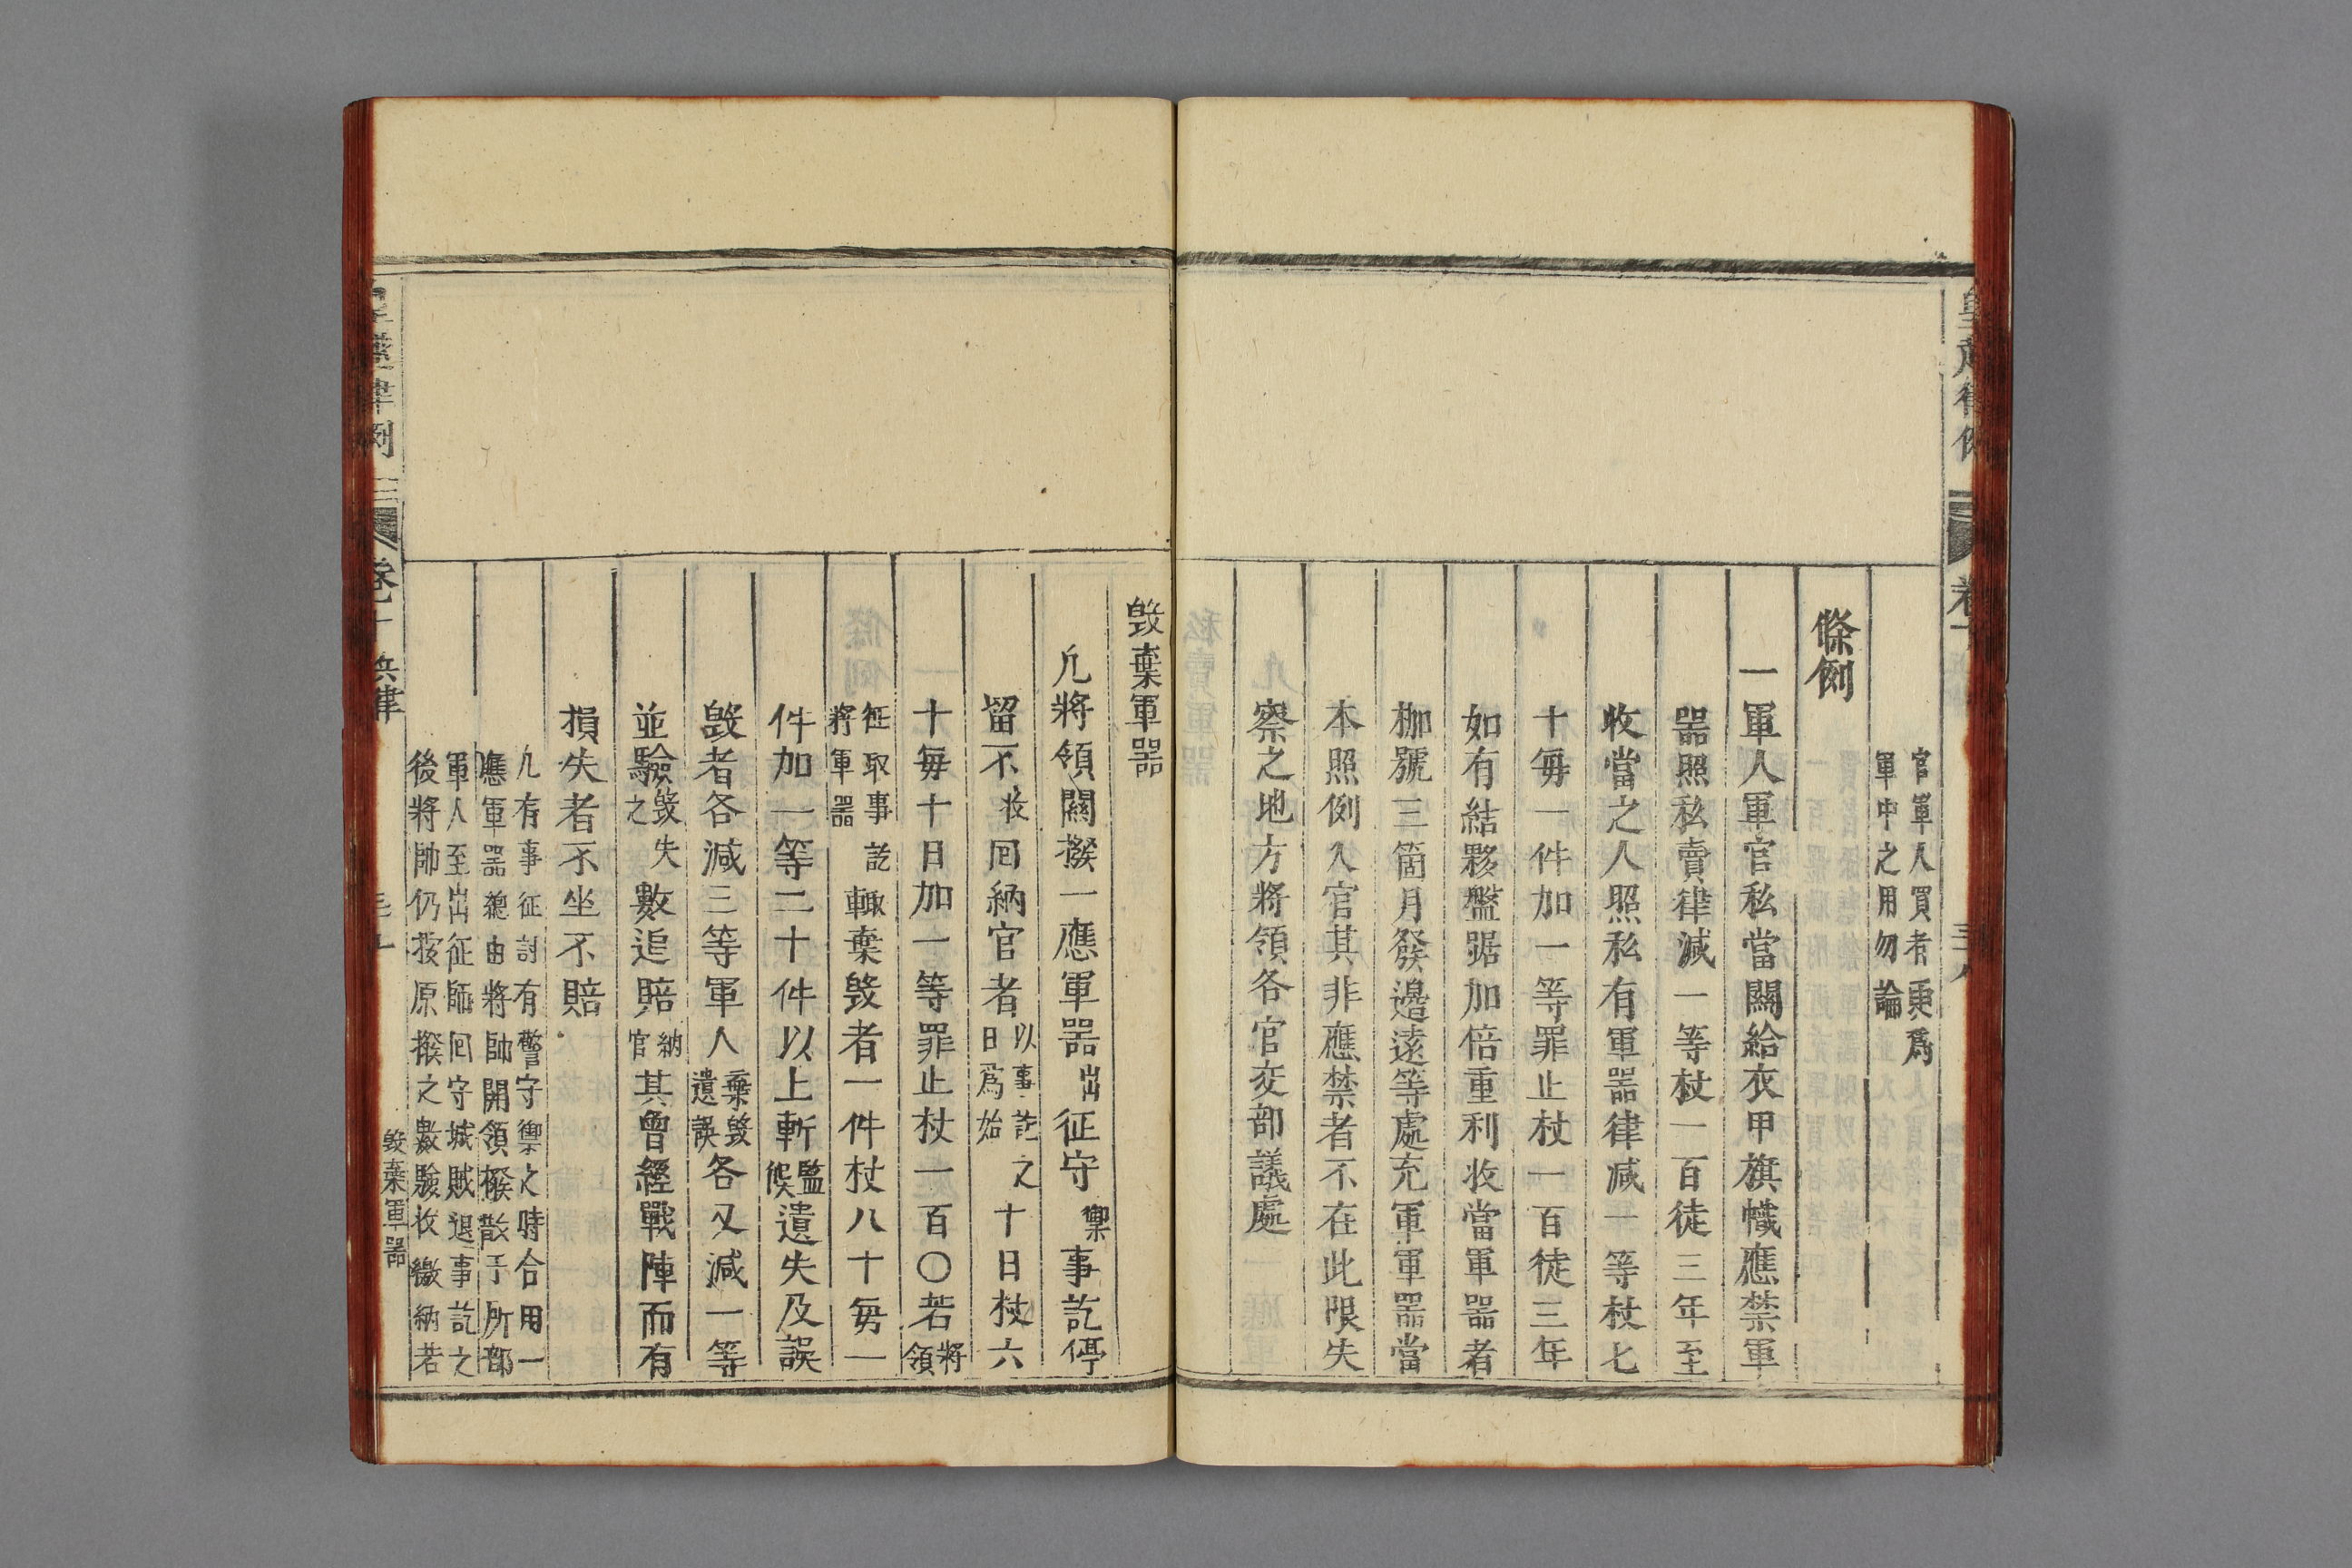 官軍人買者更爲
軍中之用勿論
條例
一軍人軍官私當關給衣甲旗幟應禁軍
器照私賣律減一等杖一百徒三年至
收當之人照私有軍器律减一等杖七
十毎一件加一等罪止杖一百徒三年
如有結夥盤踞加倍重利收當軍器者
枷號三箇月發邊遠等處充軍軍器當
本照例入官其非應禁者不在此限失
察之地方將領各官交部議處
毀棄軍器
凡將領關撥一應軍器出征守禦事訖停
留不收回納官者以事訖之日爲始十日杖六
十毎十日加一等罪止杖一百〇若將領
征取事訖將軍器輙棄毀者一件杖八十毎一
件加一等二十件以上斬監候遺失及誤
毀者各減三等軍人棄毀遺誤各又減一等
並驗毀失之數追賠納官其曾經戰陣而有
損失者不坐不賠
凡有事征討有警守禦之時合用一
應軍器總由將帥開領撥散于所部
軍人至出征師回守城賊退事訖之
後將帥仍按原撥之數驗收繳納若
皇 律例
卷十
兵律
毀棄軍器